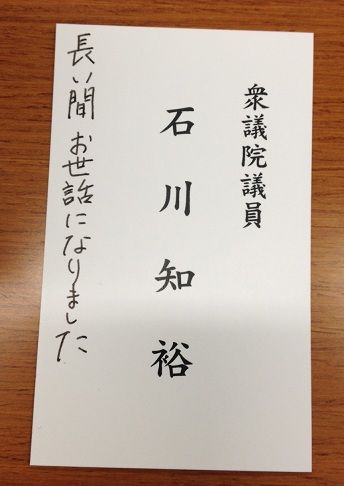 衆議院議員
石川知裕
長い間お世話になりました